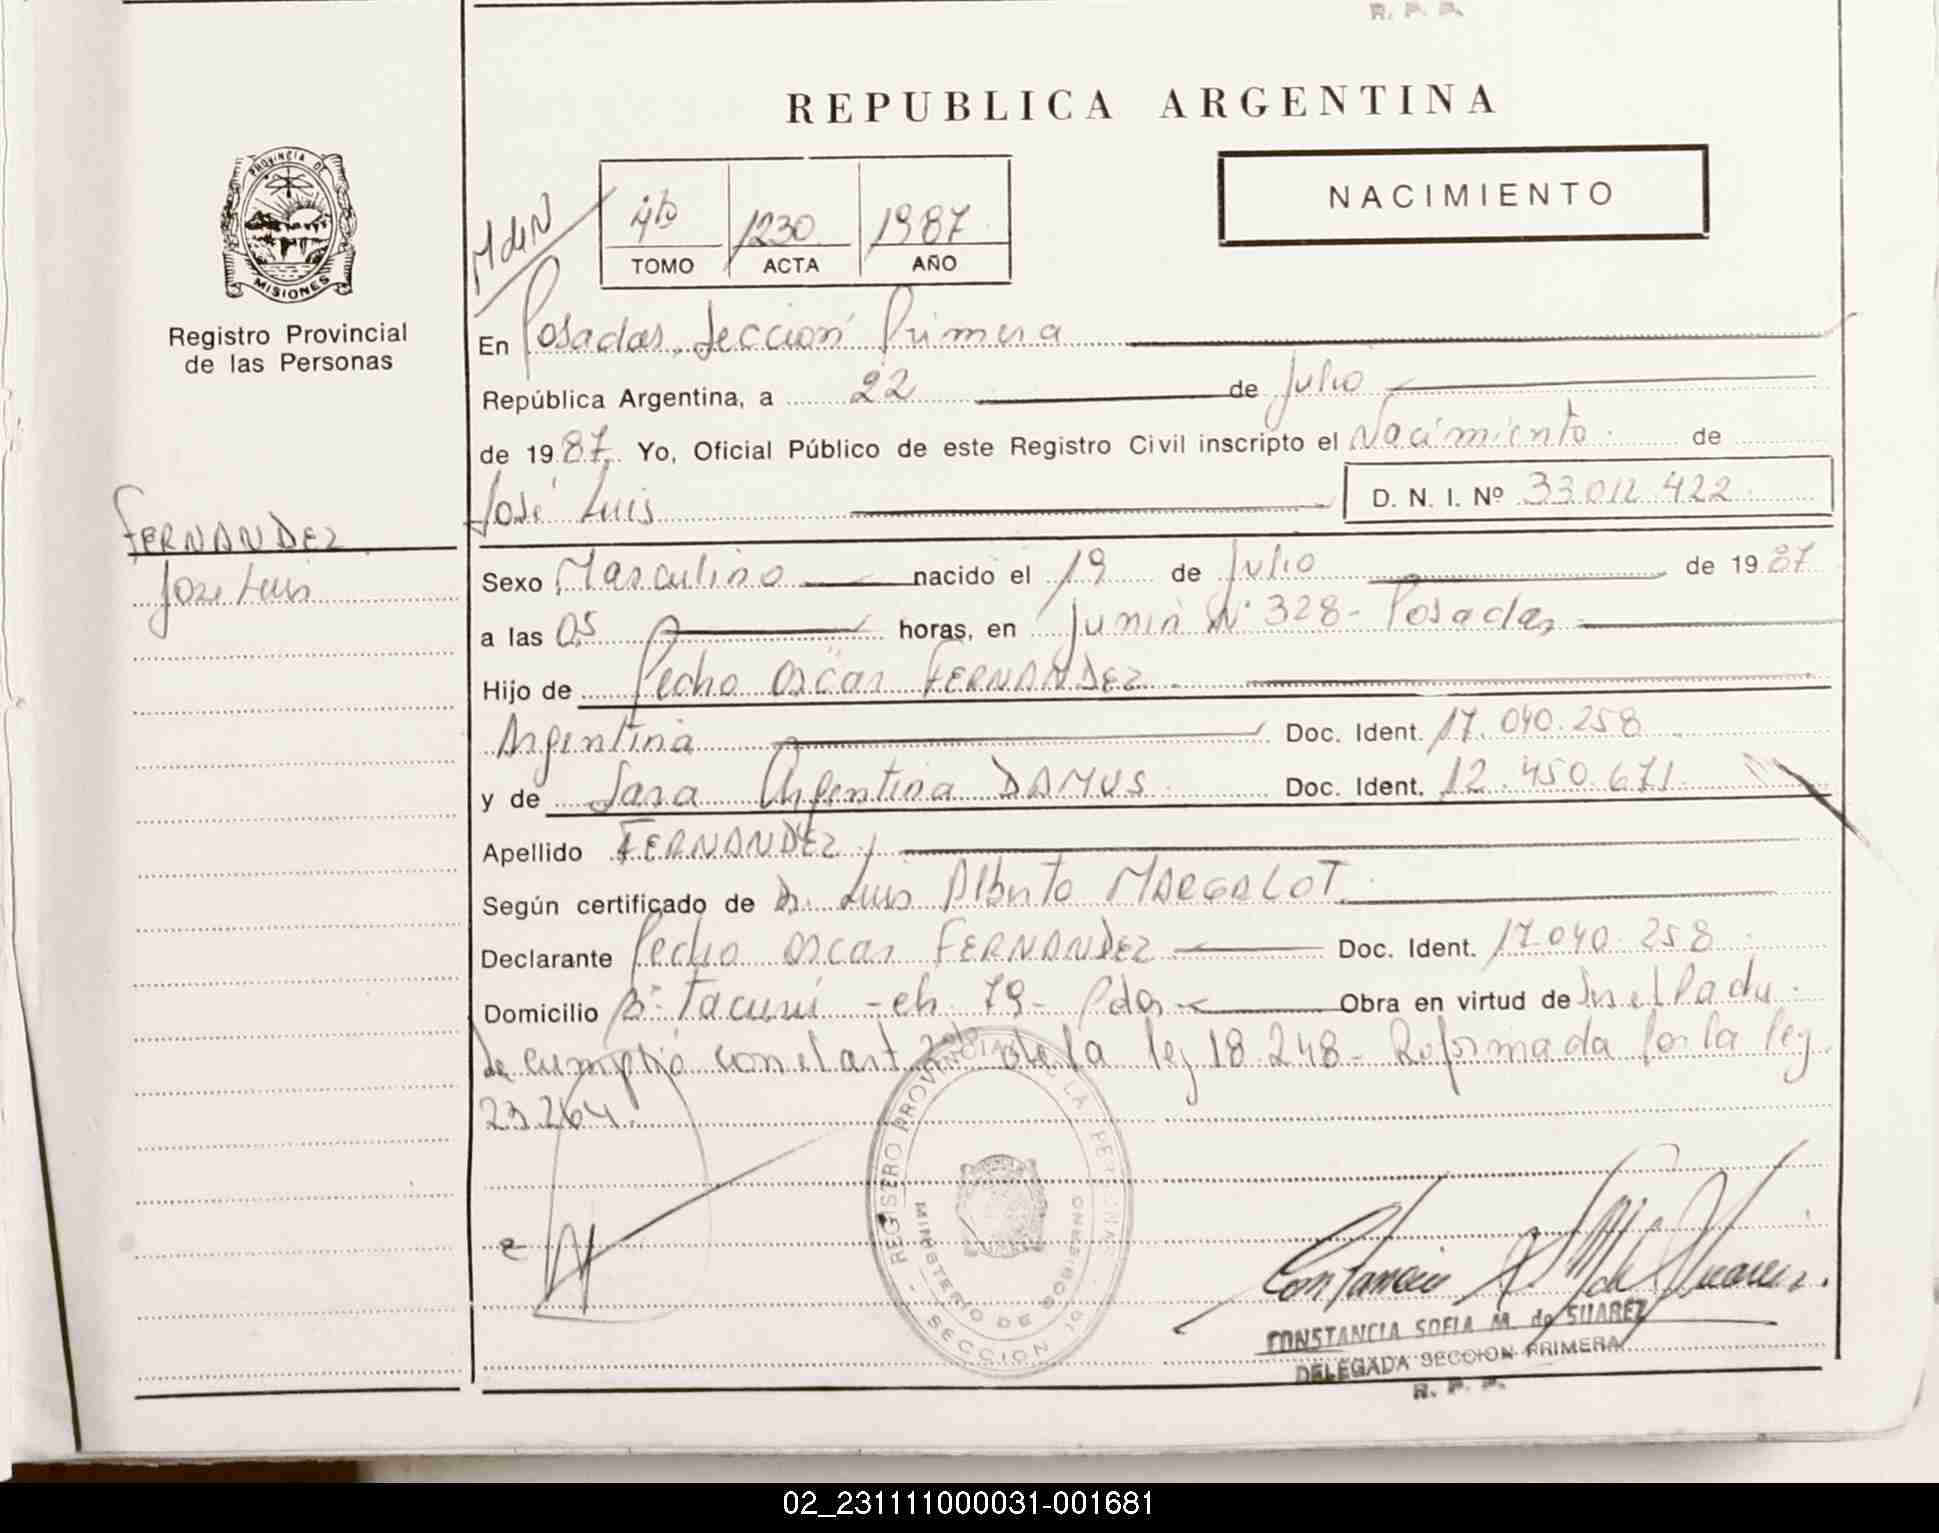 R. P. P.
REPUBLICA ARGENTINA
PROVINCIA DE
MISIONES
Registro Provincial
de las Personas
MdeN
4to 1230 1987
TOMO ACTA AÑO
NACIMIENTO
En Posadas, Sección Primera
República Argentina, a 22 de Julio
de 1987. Yo, Oficial Público de este Registro Civil inscripto el Nacimiento de
José Luis D. N. I. Nº 33.012.422
FERNANDEZ
José Luis
Sexo Masculino nacido el 19 de Julio de 1987
a las 05 horas, en Junin Nº 328 - Posadas
Hijo de Pedro Oscar FERNANDEZ
Argentina Doc. Ident. 17.040.258
y de Sara Argentina DAMUS Doc. Ident. 12.450.671
Apellido FERNANDEZ
Según certificado de Dr. Luis Alberto MARGALOT
Declarante Pedro Oscar FERNANDEZ Doc. Ident. 17.040.258
Domicilio Bº Tacurú - ch. 79 - Pdas Obra en virtud de Ser el Padre.
Se cumplió con el art 2do de la ley 18.248 - Reformada por la ley
23.264.
REGISTRO PROVINCIAL DE LAS PERSONAS
MINISTERIO DE GOBIERNO
SECCION
Constancia S. M. de Suarez.
CONSTANCIA SOFIA M. de SUAREZ
DELEGADA SECCION PRIMERA
R. P. P.
02_231111000031-001681